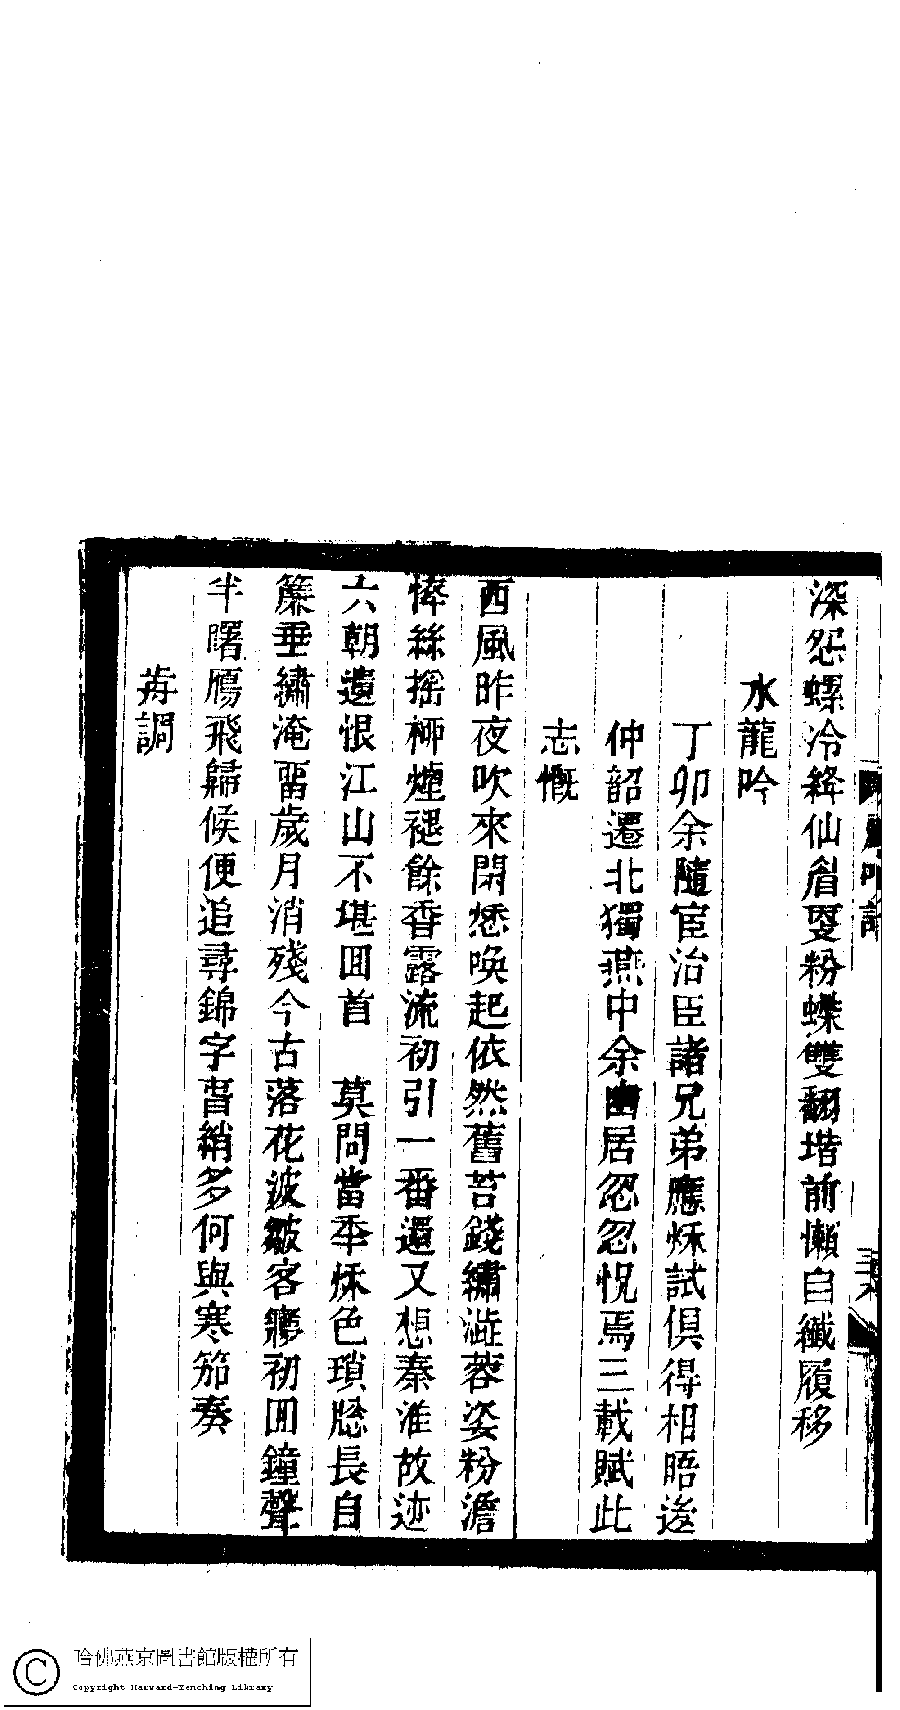 深怨螺冷絳仙眉翠粉蝶雙翻堦前懶自纖履移
水龍吟
丁卯余隨宦冶臣諸兄弟應秌試俱得相晤後
仲韶還北獨燕中余幽居忽忽怳焉三載賦此
志慨
西風昨夜吹來閒愁喚起依然舊苔錢繡澁蓉姿粉澹
悴絲搖桺煙褪餘香露流初引一番還又想秦淮故迹
六朝遺恨江山不堪囬首 莫問當秊秌色瑣牕長自
簾垂繡淹畱歲月消殘今古落花波皺客㝱初囬鐘聲
半曙鴈飛歸候便追尋錦字春綃多何與寒笳奏
其調
三
哈佛燕京圖書館版權所有
Copyright Harvard-Yenching Library